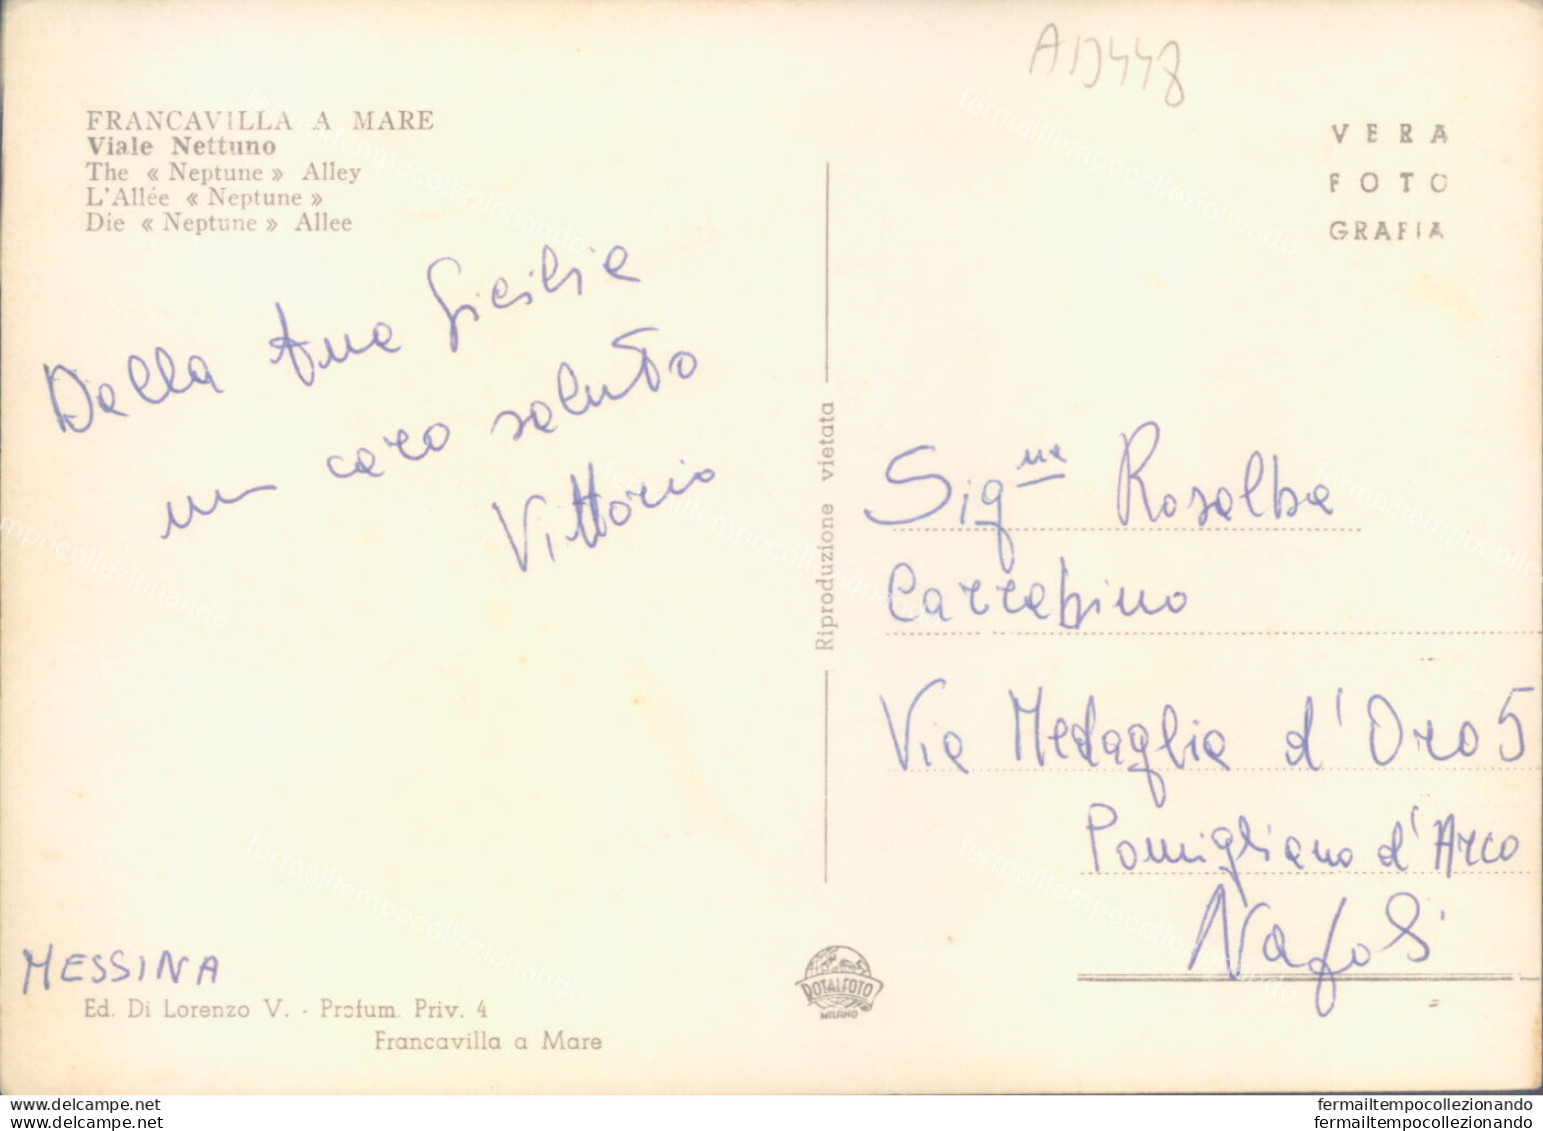 AD448
FRANCAVILLA A MARE
Viale Nettuno
The « Neptune » Alley
L'Allée « Neptune »
Die « Neptune » Allee
VERA
FOTO
GRAFIA
Dalla tua Sicilia
un caro saluto
Vittorio
Riproduzione vietata
Sig.na Rosalba
Carrabino
Via Medaglia d'Oro 5
Pomigliano d'Arco
Napoli
MESSINA
Ed. Di Lorenzo V. - Profum. Priv. 4
Francavilla a Mare
ROTALFOTO
MILANO
fermailtempocollezionando
fermailtempocollezionando
fermailtempocollezionando
fermailtempocollezionando